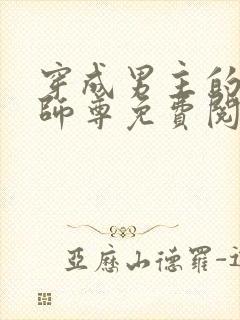 穿成男主的
師尊免費閱
亞歷山德羅-